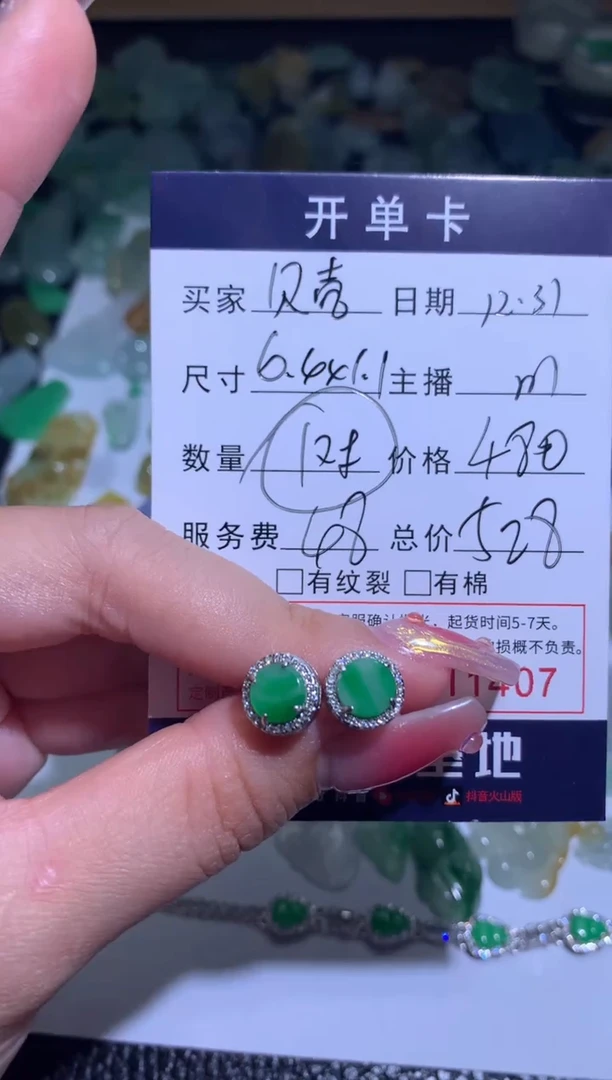 开单卡
买家 贝壳 日期 12.31
尺寸 6.6x1.1 主播 m
数量 1对 价格 480
服务费 48 总价 528
□有纹裂 □有棉
起货时间5-7天。
损概不负责。
11407
圣地
抖音火山版